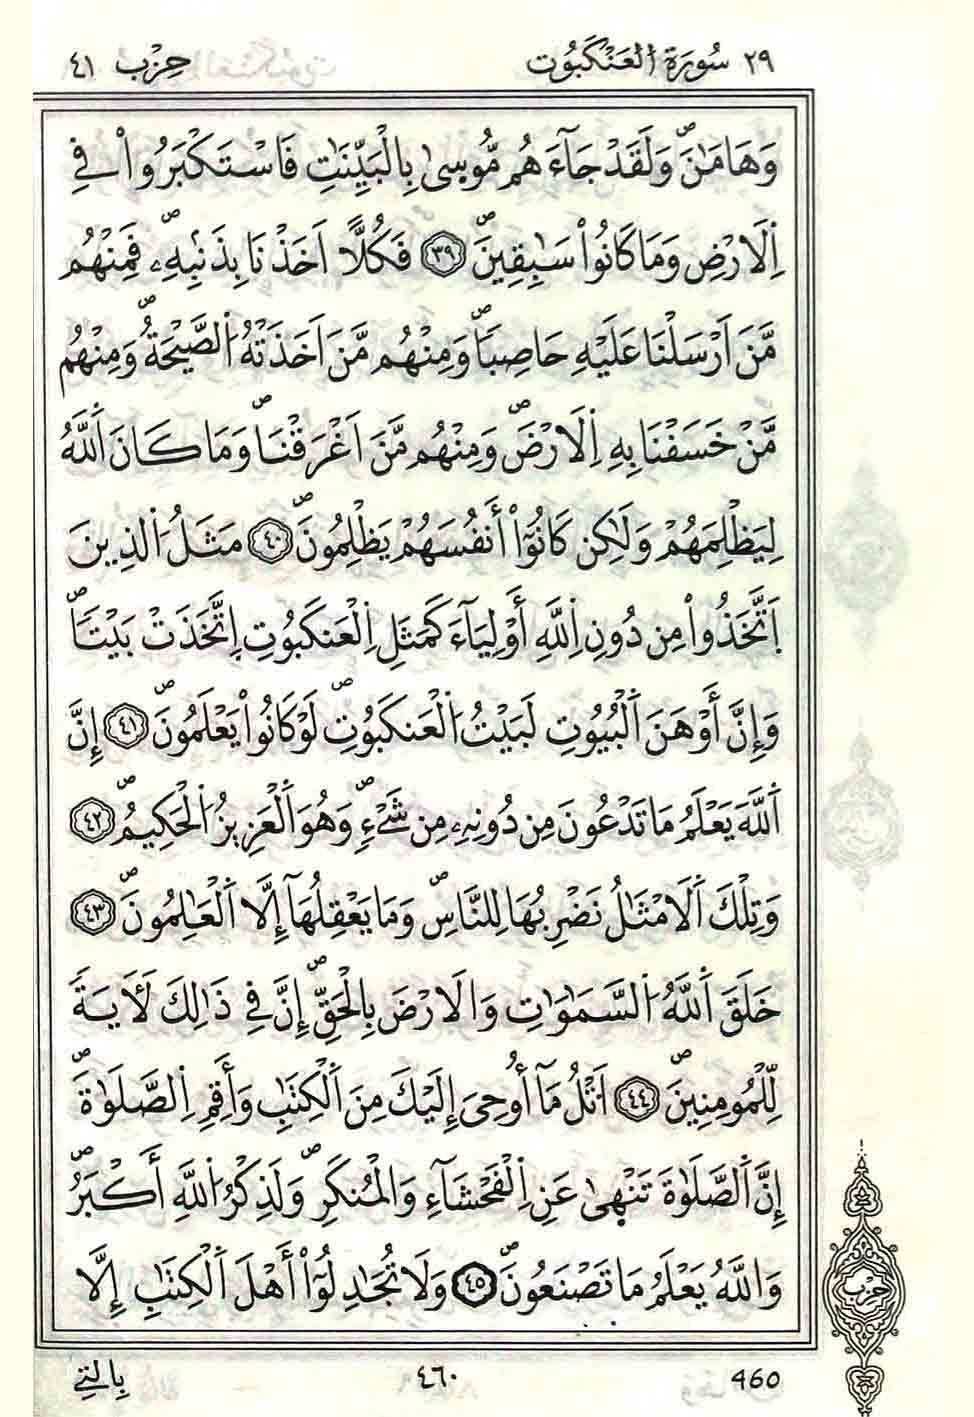 ٢٩ سُورَةُ اُ۬لْعَنكَبُوتِ حِزْب ٤١
وَهَٰمَٰنَۖ وَلَقَدْ جَآءَهُم مُّوس۪يٰ بِالْبَيِّنَٰتِ فَاسْتَكْبَرُواْ فِے
اِ۬لَارْضِ وَمَا كَانُواْ سَٰبِقِينَۖ ٣٩ فَكُلّاً اَخَذْنَا بِذَنۢبِهِۦۖ فَمِنْهُم
مَّنَ اَرْسَلْنَا عَلَيْهِ حَاصِباٗۖ وَمِنْهُم مَّنَ اَخَذَتْهُ اُ۬لصَّيْحَةُۖ وَمِنْهُم
مَّنْ خَسَفْنَا بِهِ اِ۬لَارْضَۖ وَمِنْهُم مَّنَ اَغْرَقْنَاۖ وَمَا كَانَ اَ۬للَّهُ
لِيَظْلِمَهُمْ وَلَٰكِن كَانُوٓاْ أَنفُسَهُمْ يَظْلِمُونَۖ ٤٠ مَثَلُ اُ۬لذِينَ
اَ۪تَّخَذُواْ مِن دُونِ اِ۬للَّهِ أَوْلِيَآءَ كَمَثَلِ اِ۬لْعَنكَبُوتِ اِ۪تَّخَذَتْ بَيْتاٗۖ
وَإِنَّ أَوْهَنَ اَ۬لْبُيُوتِ لَبَيْتُ اُ۬لْعَنكَبُوتِۖ لَوْ كَانُواْ يَعْلَمُونَۖ ٤١ إِنَّ
اَ۬للَّهَ يَعْلَمُ مَا تَدْعُونَ مِن دُونِهِۦ مِن شَےْءٖۖ وَهُوَ اَ۬لْعَزِيزُ اُ۬لْحَكِيمُۖ ٤٢
وَتِلْكَ اَ۬لَامْثَٰلُ نَضْرِبُهَا لِلنَّاسِۖ وَمَا يَعْقِلُهَآ إِلَّا اَ۬لْعَٰلِمُونَۖ ٤٣
خَلَقَ اَ۬للَّهُ اُ۬لسَّمَٰوَٰتِ وَالَارْضَ بِالْحَقِّۖ إِنَّ فِے ذَٰلِكَ لَأٓيَةٗ
لِّلْمُومِنِينَۖ ٤٤ اَ۟تْلُ مَآ أُوحِيَ إِلَيْكَ مِنَ اَ۬لْكِتَٰبِ وَأَقِمِ اِ۬لصَّلَوٰةَۖ
إِنَّ اَ۬لصَّلَوٰةَ تَنْه۪يٰ عَنِ اِ۬لْفَحْشَآءِ وَالْمُنكَرِۖ وَلَذِكْرُ اُ۬للَّهِ أَكْبَرُۖ
وَاللَّهُ يَعْلَمُ مَا تَصْنَعُونَۖ ٤٥ وَلَا تُجَٰدِلُوٓاْ أَهْلَ اَ۬لْكِتَٰبِ إِلَّا
حِزْب
460 ٤٦٠ بِالتِے